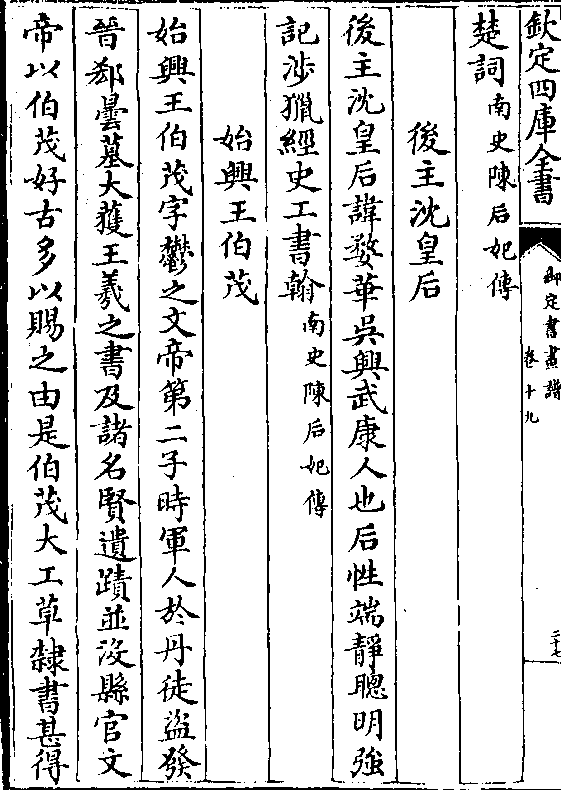 欽定四庫全書
御定書畫譜
卷十九
二十七
楚詞南史陳后妃傳
後主沈皇后
後主沈皇后諱婺華吳興武康人也后性端靜聰明強
記涉獵經史工書翰南史陳后妃傳
始興王伯茂
始興王伯茂字鬱之文帝第二子時軍人於丹徒盜發
晉郄曇墓大獲王羲之書及諸名賢遺蹟並没縣官文
帝以伯茂好古多以賜之由是伯茂大工草隸書甚得